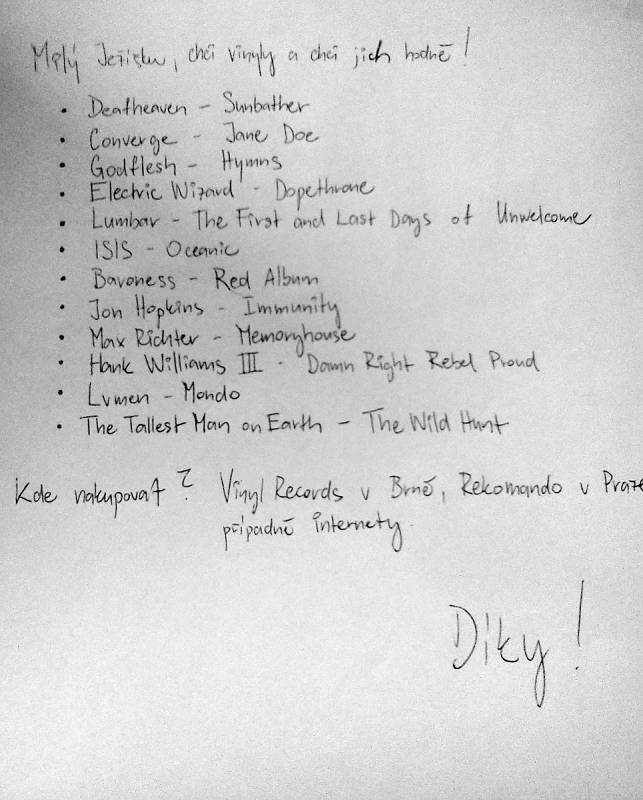 Milý Ježíšku, chci vinyly a chci jich hodně!
• Deafheaven - Sunbather
• Converge - Jane Doe
• Godflesh - Hymns
• Electric Wizard - Dopethrone
• Lumbar - The First and Last Days of Unwelcome
• ISIS - Oceanic
• Baroness - Red Album
• Jon Hopkins - Immunity
• Max Richter - Memoryhouse
• Hank Williams III - Damn Right Rebel Proud
• Lvmen - Mondo
• The Tallest Man on Earth - The Wild Hunt
Kde nakupovat? Vinyl Records v Brně, Rekomando v Praze
případně internety.
Díky!